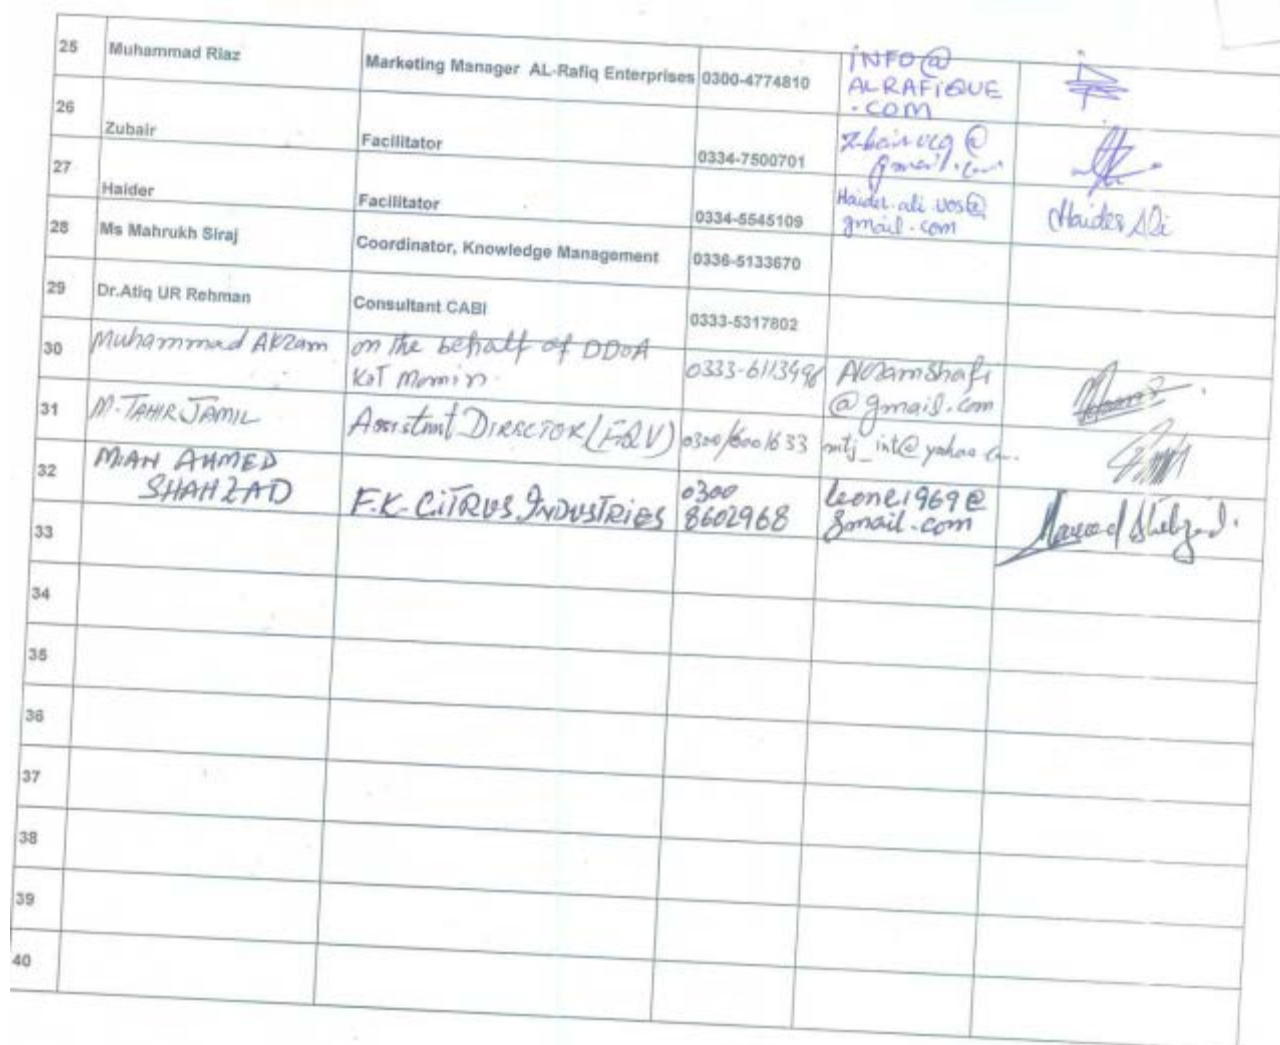 25 Muhammad Riaz Marketing Manager AL-Rafiq Enterprises 0300-4774810 INFO@
ALRAFIQUE
.COM
26 Zubair Facilitator 0334-7500701 @
gmail.com
27 Haider Facilitator 0334-5545109 Haider.ali.uos@
gmail.com Haider Ali
28 Ms Mahrukh Siraj Coordinator, Knowledge Management 0336-5133670
29 Dr.Atiq UR Rehman Consultant CABI 0333-5317802
30 Muhammad Akram on the behalf of DDOA
Kot Momin. 0333-6113498 Akramshafi
@gmail.com
31 M. TAHIR JAMIL Assistant DIRECTOR 0300/6001633 mtj_int@yahoo
32 MIAN AHMED
SHAHZAD F.K. CITRUS INDUSTRIES 0300
8602968 leone1969@
gmail.com
33
34
35
36
37
38
39
40